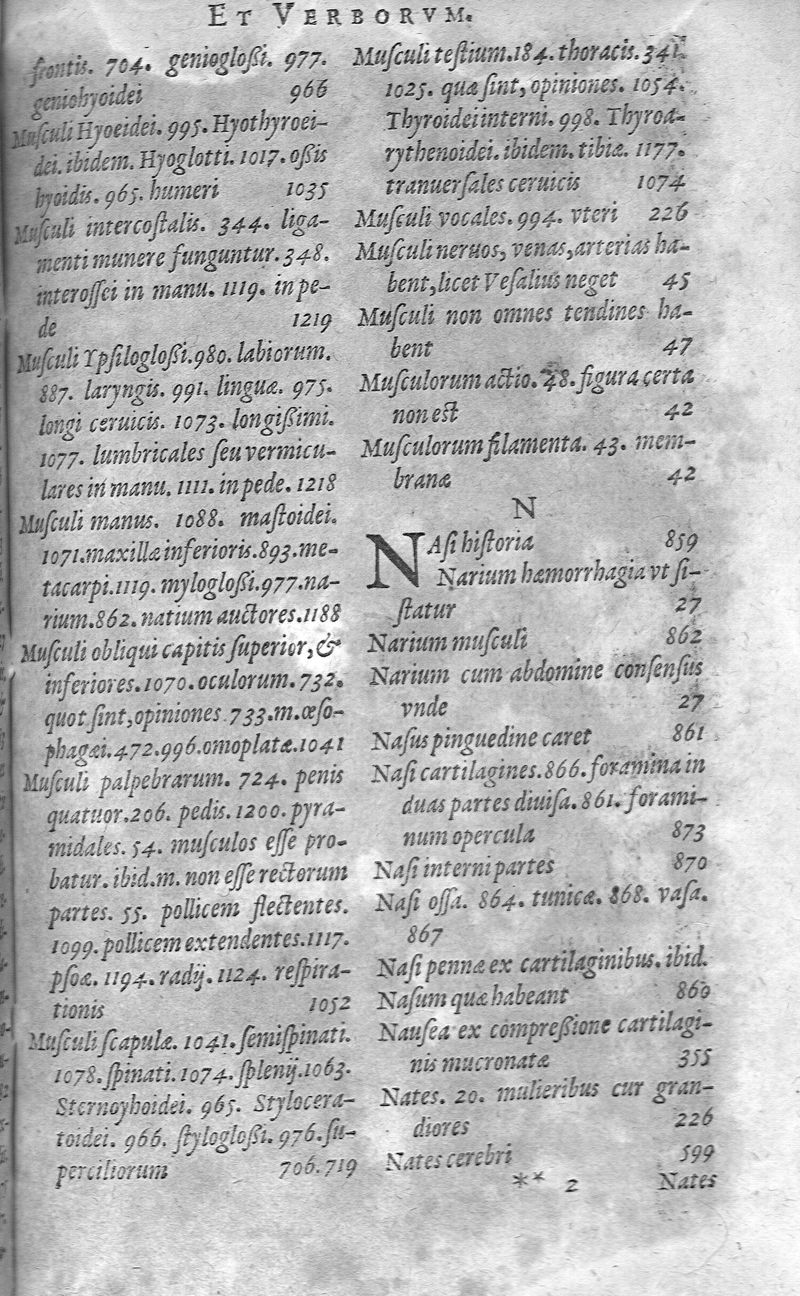 ET VERBORVM.
frontis. 704. geniogloßi. 977.
geniohyoidei 966
Muſculi Hyoeidei. 995. Hyothyroei-
dei. ibidem. Hyoglotti. 1017. oßis
hyoidis. 965. humeri 1035
Muſculi intercoſtalis. 344. liga-
menti munere funguntur. 348.
interoſſei in manu. 1119. in pe-
de 1219
Muſculi Ypſilogloßi. 980. labiorum.
887. laryngis. 991. linguæ. 975.
longi ceruicis. 1073. longißimi.
1077. lumbricales ſeu vermicu-
lares in manu. 1111. in pede. 1218
Muſculi manus. 1088. maſtoidei.
1071. maxillæ inferioris. 893. me-
tacarpi. 1119. mylogloßi. 977. na-
rium. 862. natium auctores. 1188
Muſculi obliqui capitis ſuperior, &
inferiores. 1070. oculorum. 732.
quot ſint, opiniones 733. m. œſo-
phagæi. 472. 996. omoplatæ. 1041
Muſculi palpebrarum. 724. penis
quatuor. 206. pedis. 1200. pyra-
midales. 54. muſculos eſſe pro-
batur. ibid. m. non eſſe rectorum
partes. 55. pollicem flectentes.
1099. pollicem extendentes. 1117.
pſoæ. 1194. radij. 1124. reſpira-
tionis 1052
Muſculi ſcapulæ. 1041. ſemiſpinati.
1078. ſpinati. 1074. ſplenij. 1063.
Sternoyhoidei. 965. Stylocera-
toidei. 966. ſtylogloßi. 976. ſu-
perciliorum 706. 719
Muſculi teſtium. 184. thoracis. 341.
1025. quæ ſint, opiniones. 1054.
Thyroidei interni. 998. Thyroa-
rythenoidei. ibidem. tibiæ. 1177.
tranuerſales ceruicis 1074
Muſculi vocales. 994. vteri 226
Muſculi neruos, venas, arterias ha-
bent, licet Veſalius neget 45
Muſculi non omnes tendines ha-
bent 47
Muſculorum actio. 48. figura certa
non eſt 42
Muſculorum filamenta. 43. mem-
branæ 42
N
NAſi hiſtoria 859
Narium hæmorrhagia vt ſi-
ſtatur 27
Narium muſculi 862
Narium cum abdomine conſenſus
vnde 27
Naſus pinguedine caret 861
Naſi cartilagines. 866. foramina in
duas partes diuiſa. 861. forami-
num opercula 873
Naſi interni partes 870
Naſi oſſa. 864. tunicæ. 868. vaſa.
867
Naſi pennæ ex cartilaginibus. ibid.
Naſum quæ habeant 860
Nauſea ex compreßione cartilagi-
nis mucronatæ 355
Nates. 20. mulieribus cur gran-
diores 226
Nates cerebri 599
** 2 Nates